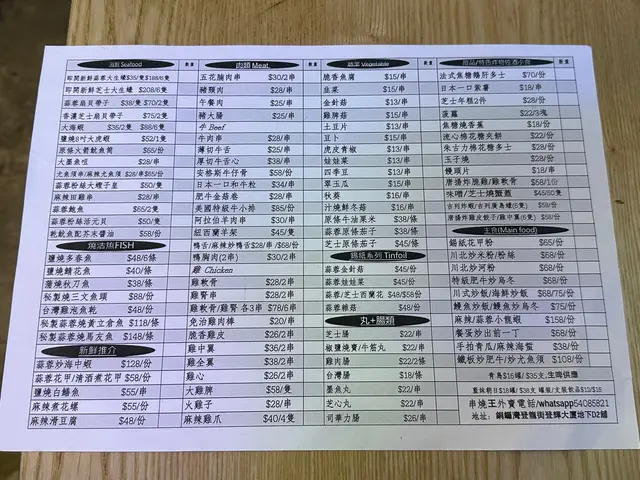 海鮮 Seafood 數量
即開新鮮蒜蓉大生蠔$35/隻$188/6隻
即開新鮮芝士大生蠔 $208/6隻
蒜蓉扇貝帶子 $38/隻 $70/2隻
香濃芝士扇貝帶子 $75/2隻
大海蝦 $36/2隻 $88/6隻
鹽燒8吋大虎蝦 $52/1隻
原條大箭魷魚筒 $65/份
大墨魚咀 $28/串
尤魚須串/麻辣尤魚串$28/串$65/份
蒜蓉粉絲大蟶子皇 $50/隻
麻辣豆卜串 $28/串
蒜蓉鮑魚 $65/2隻
蒜蓉粉絲活元貝 $50/隻
乾魷魚配芥末醬油 $58/份
燒活魚FISH
鹽燒多春魚 $48/6條
鹽燒鯖花魚 $40/條
蒲燒秋刀魚 $38/條
秘製燒三文魚頭 $88/份
台灣雞泡魚乾 $48/份
秘製蒜蓉燒黃立倉魚 $118/條
秘製蒜蓉燒馬友魚 $148/條
新鮮推介
蒜蓉炒海中蝦 $128/份
蒜蓉花甲/清酒煮花甲 $58/份
鹽燒白鱔魚 $55/串
麻辣煮花螺 $55/份
麻辣滑豆腐 $48/份
肉類 Meat 數量
五花腩肉串 $30/2串
豬頸肉 $28/串
午餐肉 $25/串
豬大腸 $25/串
牛 Beef
牛肉串 $28/串
薄切牛舌 $25/串
厚切牛舌心 $38/串
安格斯牛仔骨 $58/份
日本一口和牛粒 $34/串
肥牛金菇卷 $28/串
美國特級牛小排 $85/份
阿拉伯羊肉串 $28/串
紐西蘭羊架 $45/隻
鴨舌/麻辣炒鴨舌$28/串 /$68/份
鴨胸肉(2串) $30/2串
雞 Chicken
雞軟骨 $28/2串
雞腎串 $28/2串
雞軟骨/雞腎 各3串 $78/6串
免治雞肉棒 $20/串
脆香雞皮 $26/2串
雞中翼 $36/2串
雞全翼 $38/2串
雞心 $26/2串
大雞髀 $58/隻
火雞子 $28/串
麻辣雞爪 $40/4隻
蔬菜 Vegetable 數量
脆香魚腐 $15/串
韭菜 $15/串
金針菇 $13/串
雞脾菇 $15/串
土豆片 $13/串
豆卜 $15/串
虎皮青椒 $13/串
娃娃菜 $13/串
四季豆 $13/串
翠玉瓜 $15/串
秋葵 $16/串
汁燒鮮冬菇 $16/串
原條牛油粟米 $38/條
蒜蓉原條茄子 $38/條
芝士原條茄子 $45/條
錫紙系列 Tinfoil
蒜蓉金針菇 $45/份
蒜蓉娃娃菜 $45/份
蒜蓉/芝士西蘭花 $48/$58份
蒜蓉雜菇 $48/份
丸+腸類
芝士腸 $22/串
椒鹽燒賣/牛筋丸 $22/串
雞肉腸 $22/2條
台灣腸 $18/條
墨魚丸 $22/串
芝心丸 $22/串
司華力腸 $26/串
甜品/特色炸物佐酒小食 數量
法式焦糖鵝肝多士 $70/份
日本一口紫薯 $18/串
芝士年糕2件 $28/份
菠蘿 $22/3塊
焦糖燒香蕉 $18/份
流心棉花糖夾餅 $22/份
朱古力棉花糖多士 $28/份
玉子燒 $28/份
饅頭片 $18/串
唐揚炸脆雞/雞軟骨 $58/1份
味噌/芝士燒蟹蓋 $45/50隻
吉列炸蝦/吉列廣島蠔(6隻) $58/份
唐揚炸雞皮餃子/雞中翼(6隻) $58/份
主食(Main food)
錫紙花甲粉 $65/份
川北炒米粉/粉絲 $68/份
川北炒河粉 $68/份
特級肥牛炒烏冬 $68/份
川式炒飯/海鮮炒飯 $68/75/份
鰻魚炒飯/鰻魚炒烏冬 $75/份
麻辣/蒜蓉小龍蝦 $158/份
餐蛋炒出前一丁 $68/份
手拍青瓜/麻辣海蜇 $38/份
鐵板炒肥牛/炒尤魚須 $108/份
青島$16罐/$35支,生啤供應
藍妹朝日$18罐/$38支 罐裝/支裝飲品$12/$16
串燒王外賣電話/whatsapp54085821
地址: 銅鑼灣登龍街登輝大廈地下D2舖